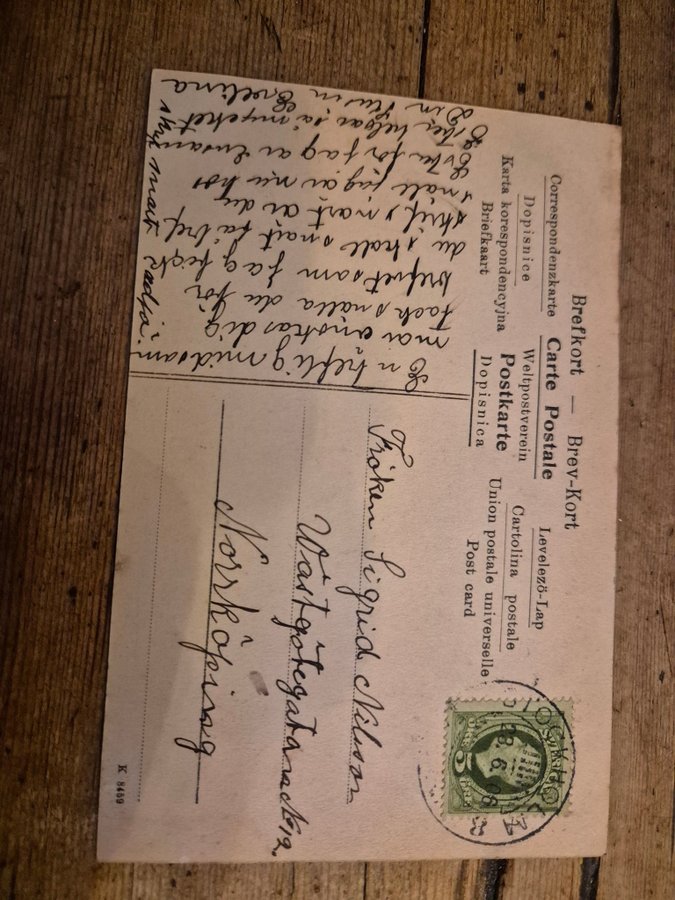 Brefkort — Brev-Kort
Correspondenzkarte Carte Postale Levelező-Lap
Dopisnice Weltpostverein Cartolina postale
Karta korespondencyjna Postkarte Union postale universelle
Briefkaart Dopisnica Post card
En heflig midsom
mar önskas dig
tack snälla du för
brefvet som jag fick
du skall snart få bref
skrif snart är du
snäll jag är nu hos
Ester för jag är ensam
Ester helsar så mycket
Din kusin Evelina
skrif snart adjö
Fröken Sigrid Nilsson
Wästgötegatan No 12.
Norrköping
STOCKHOLM
23.6.08
SVERIGE
5
K 8459